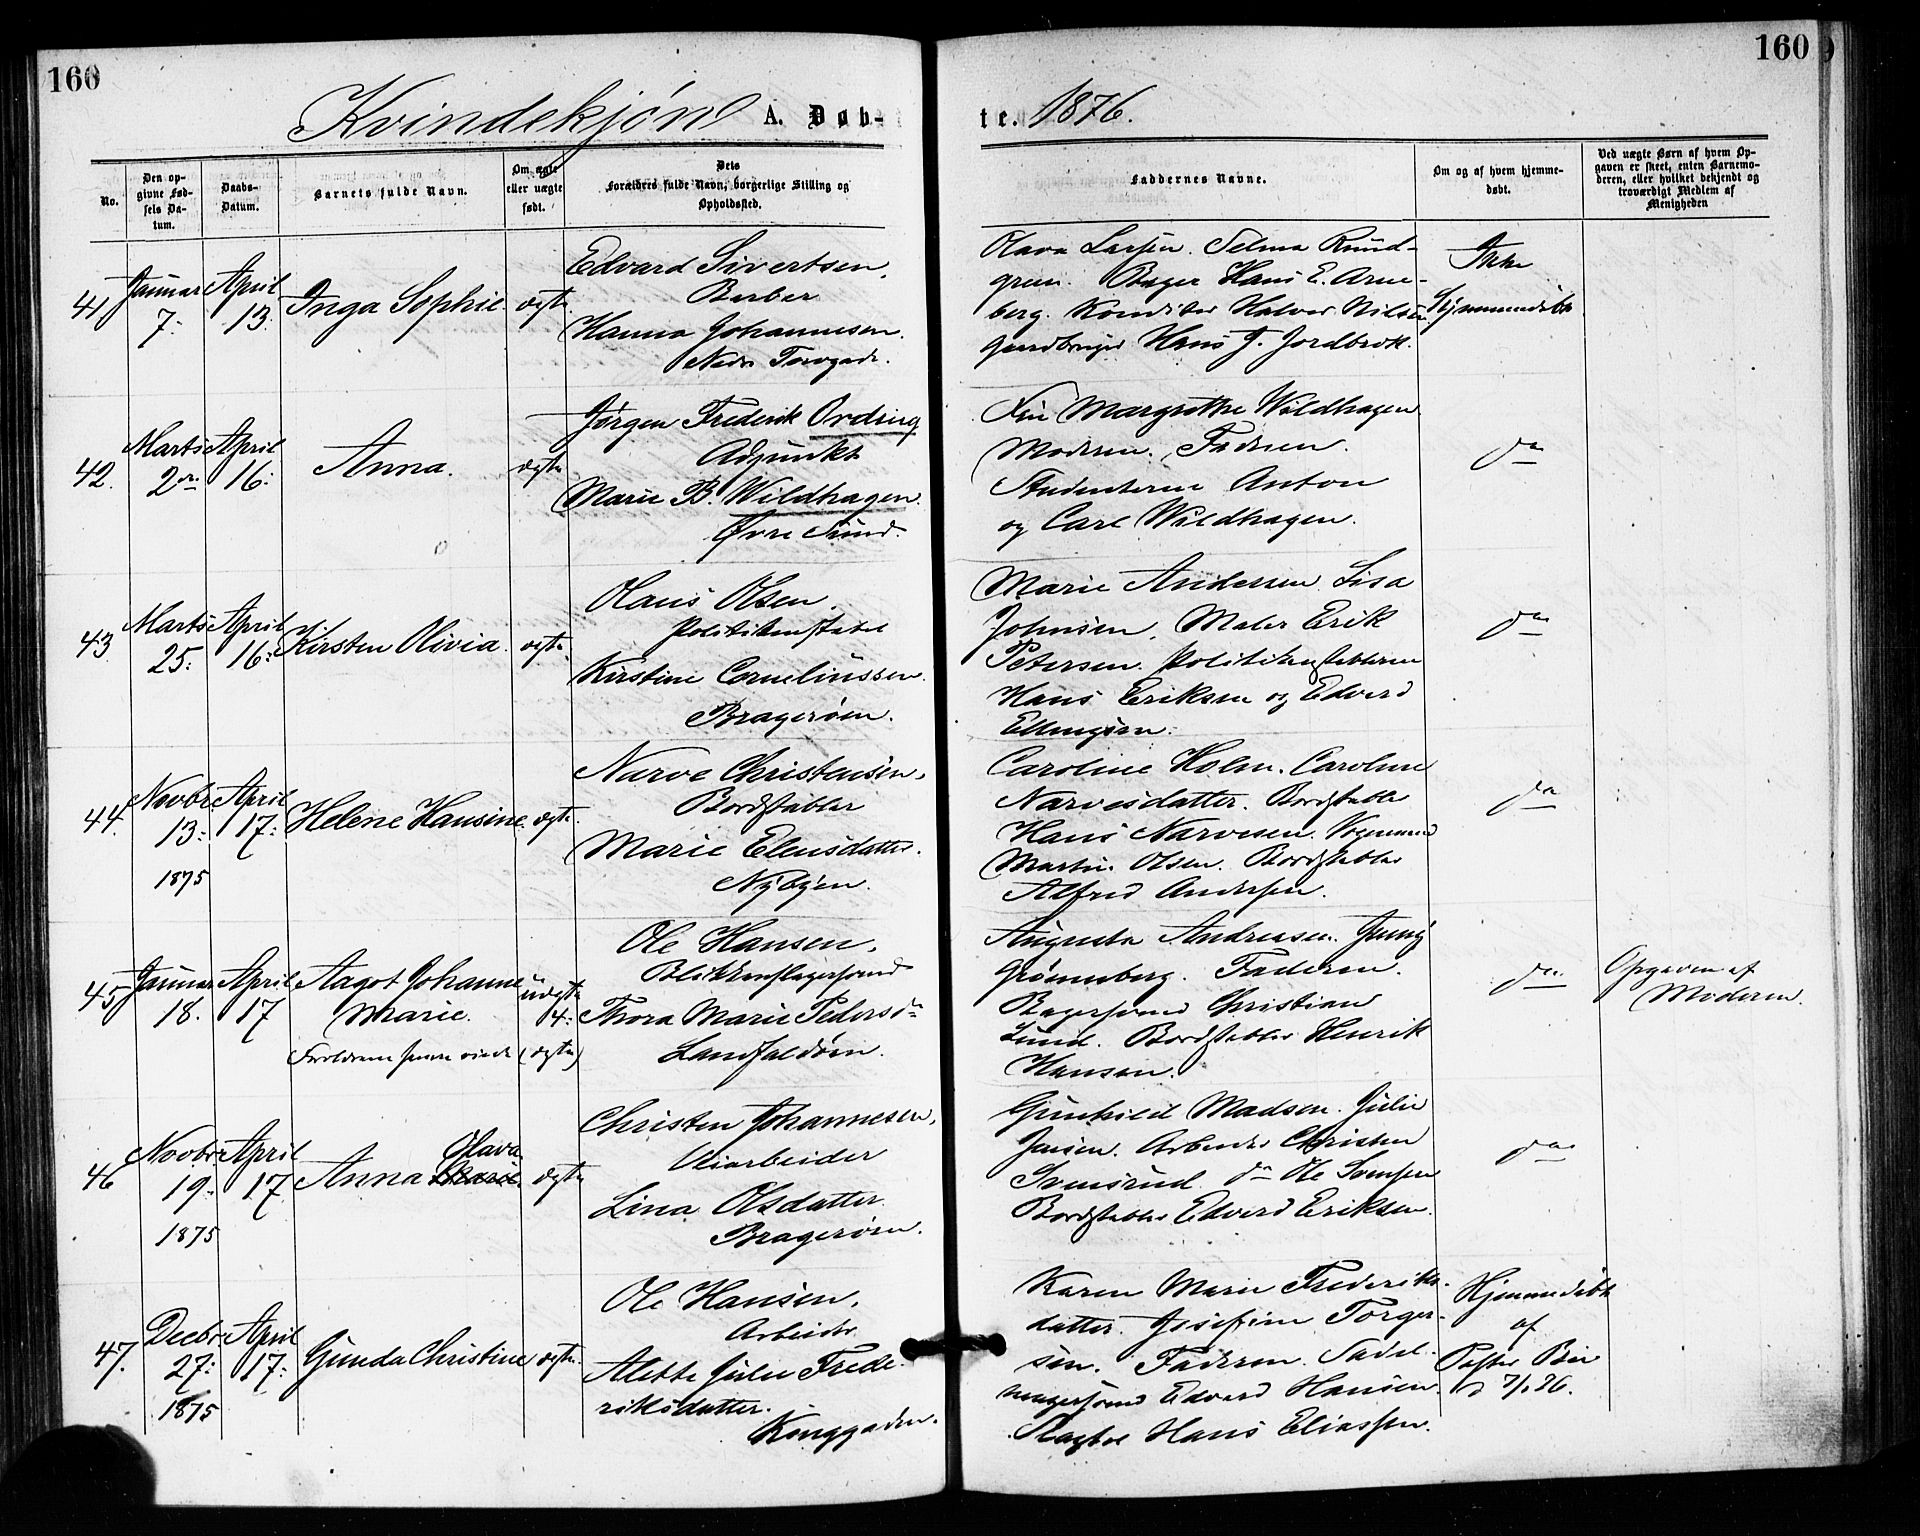 160
160
Kvindekjøn A. Døb-
te. 1876.
No.
Den op-
givne Fød-
sels Da-
tum.
Daabs-
Datum.
Barnets fulde Navn.
Om ægte
eller uægte
født.
Dets
Forældres fulde Navn, borgerlige Stilling og
Opholdssted.
Faddernes Navne.
Om og af hvem hjemme-
døbt.
Ved uægte Børn af hvem Op-
gaven er skeet, enten Barnemo-
deren, eller hvilket bekjendt og
troværdigt Medlem af
Menigheden
41.
Januar
7.
April
13.
Inga Sophie.
ægte
Edvard Sivertsen,
Barber
Hanna Johannesen.
Nedre Torvgade.
Olava Larsen. Selma Rund-
gren. Bager Hans E. Arne-
berg. Konditor Halvor Nilsen
Gaardbruger Hans J. Jordbræk.
Ikke
Hjemmedøbt
42.
Marts
2den
April
16.
Anna.
ægte
Jørgen Frederik Ording
Adjunkt
Marie B. Wildhagen.
Øvre Sund.
Fru Margrethe Wildhagen
Moderen. Faderen.
Studenterne Anton
og Carl Wildhagen.
do
43.
Marts
25.
April
16.
Kirsten Olivia.
ægte
Olaus Olsen.
Politikonstabel
Kirstine Corneliussen.
Bragerøen.
Marie Andersen. Lisa
Johnsen. Maler Erik
Petersen. Politikonstablerne
Hans Eriksen og Edvard
Ellingsen.
do
44.
Novbr.
13.
1875
April
17.
Helene Hansine.
ægte.
Narve Christensen,
Bordstabler
Marie Elensdatter.
Nybyen.
Caroline Holm. Caroline
Narvesdatter. Bordstabler
Hans Narvesen. Vognmand
Martin Olsen. Bordstabler
Alfred Andersen.
do
45
Januar
18.
April
17
Aagot Johanne
Marie.
Forældrene senere viede (ægte)
uægte
4.
Ole Hansen,
Blikkenslagersvend
Thora Marie Pedersdr
Landfaldøen.
Augusta Andreasen. Jenny
Grønneberg. Faderen.
Bagersvend Christian
Lund. Bordstabler Henrik
Hansen.
do
Opgaven af
Moderen.
46
Novbr
19.
1875
April
17
Olava
Anna Marie.
ægte
Christen Johannesen,
Veiarbeider
Lina Olsdatter.
Bragerøen.
Gunhild Madsen. Julie
Jensen. Arbeider Christen
Svensrud. do Ole Svensen
Bordstabler Edvard Eriksen.
do
47.
Decbr
27.
1875
April
17.
Gunda Christine
ægte.
Ole Hansen,
Arbeider
Alette Julie Frede-
riksdatter.
Konggaden.
Karen Marie Frederiks-
datter. Josefine Torger-
sen. Faderen. Sadel-
magersvend Edvard Hansen.
Hans Eliassen.
Hjemmedøbt
af
Pastor